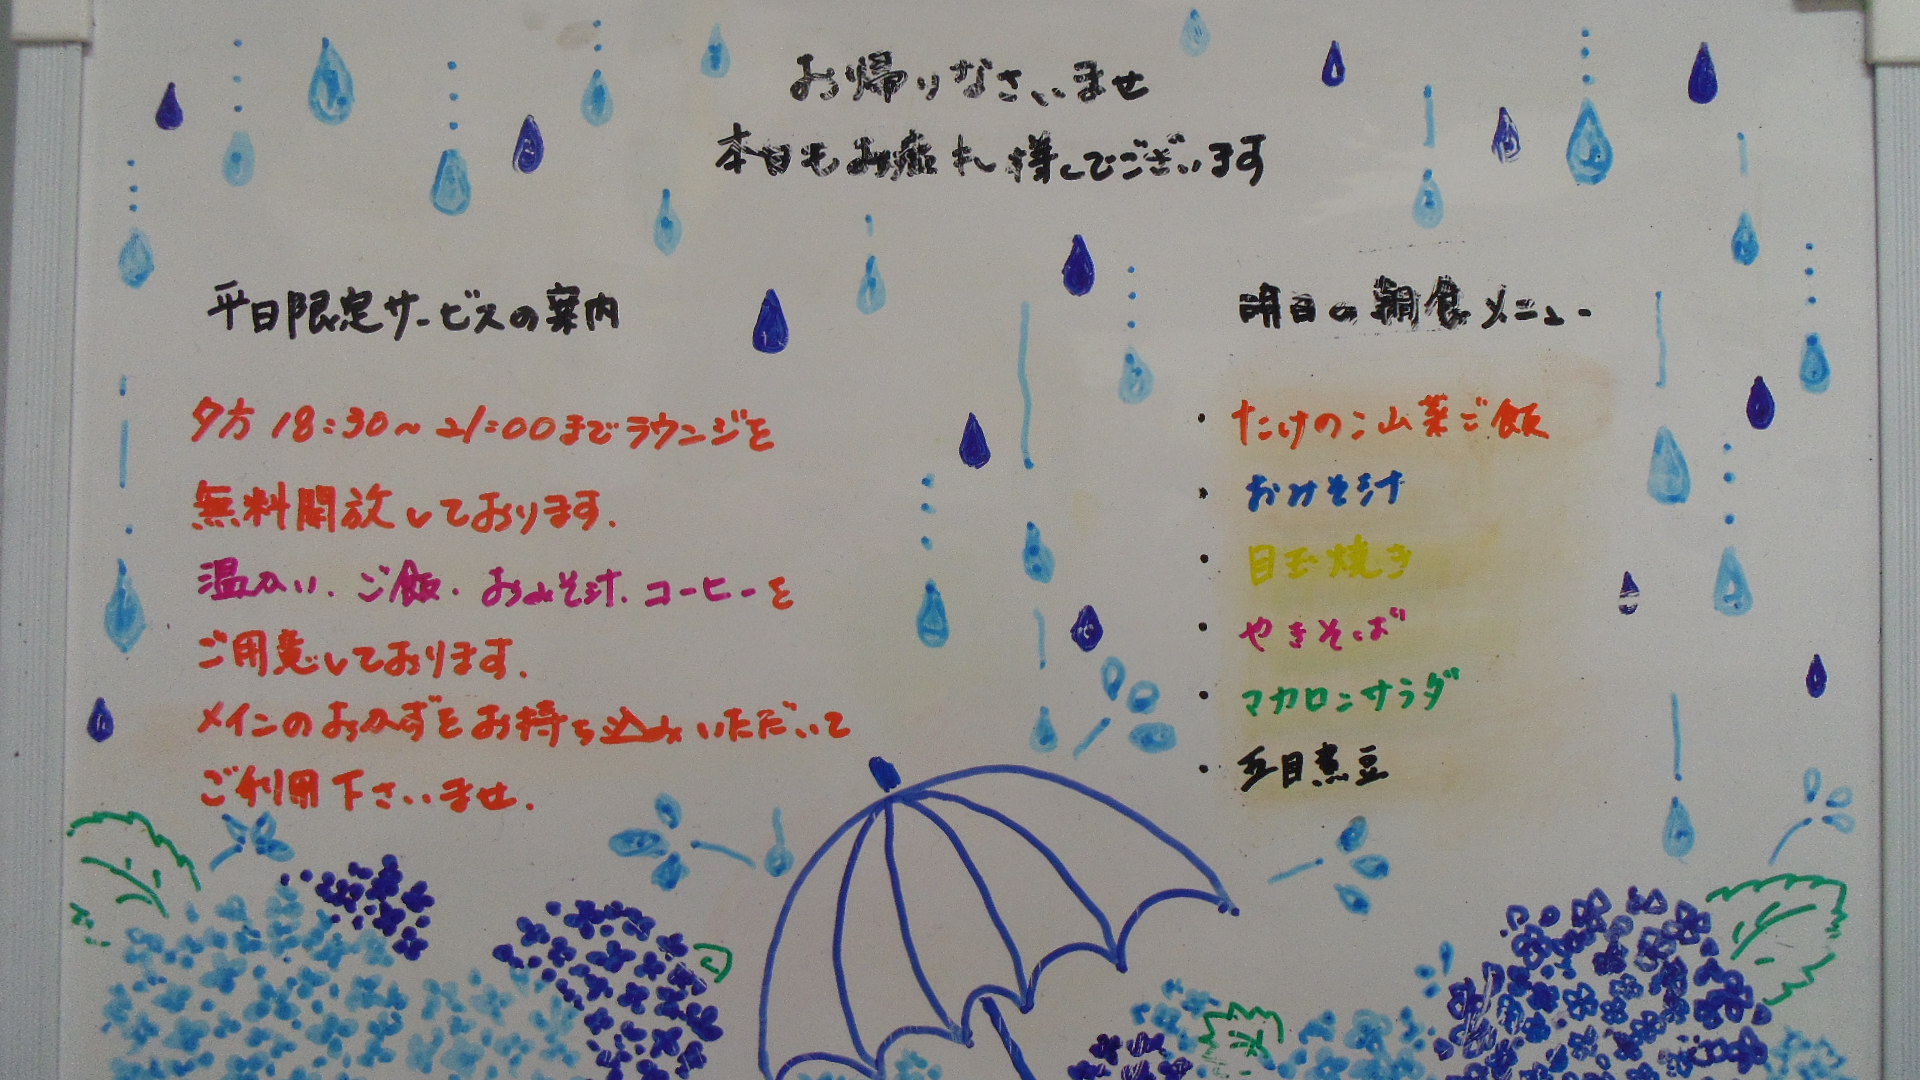 お帰りなさいませ
本日もお疲れ様でございます
平日限定サービスの案内
夕方18:30〜21:00までラウンジを
無料開放しております.
温かい、ご飯・おみそ汁、コーヒーを
ご用意しております.
メインのおかずをお持ち込みいただいて
ご利用下さいませ.
明日の朝食メニュー
・たけのこ山菜ご飯
・おみそ汁
・目玉焼き
・やきそば
・マカロニサラダ
・五目煮豆